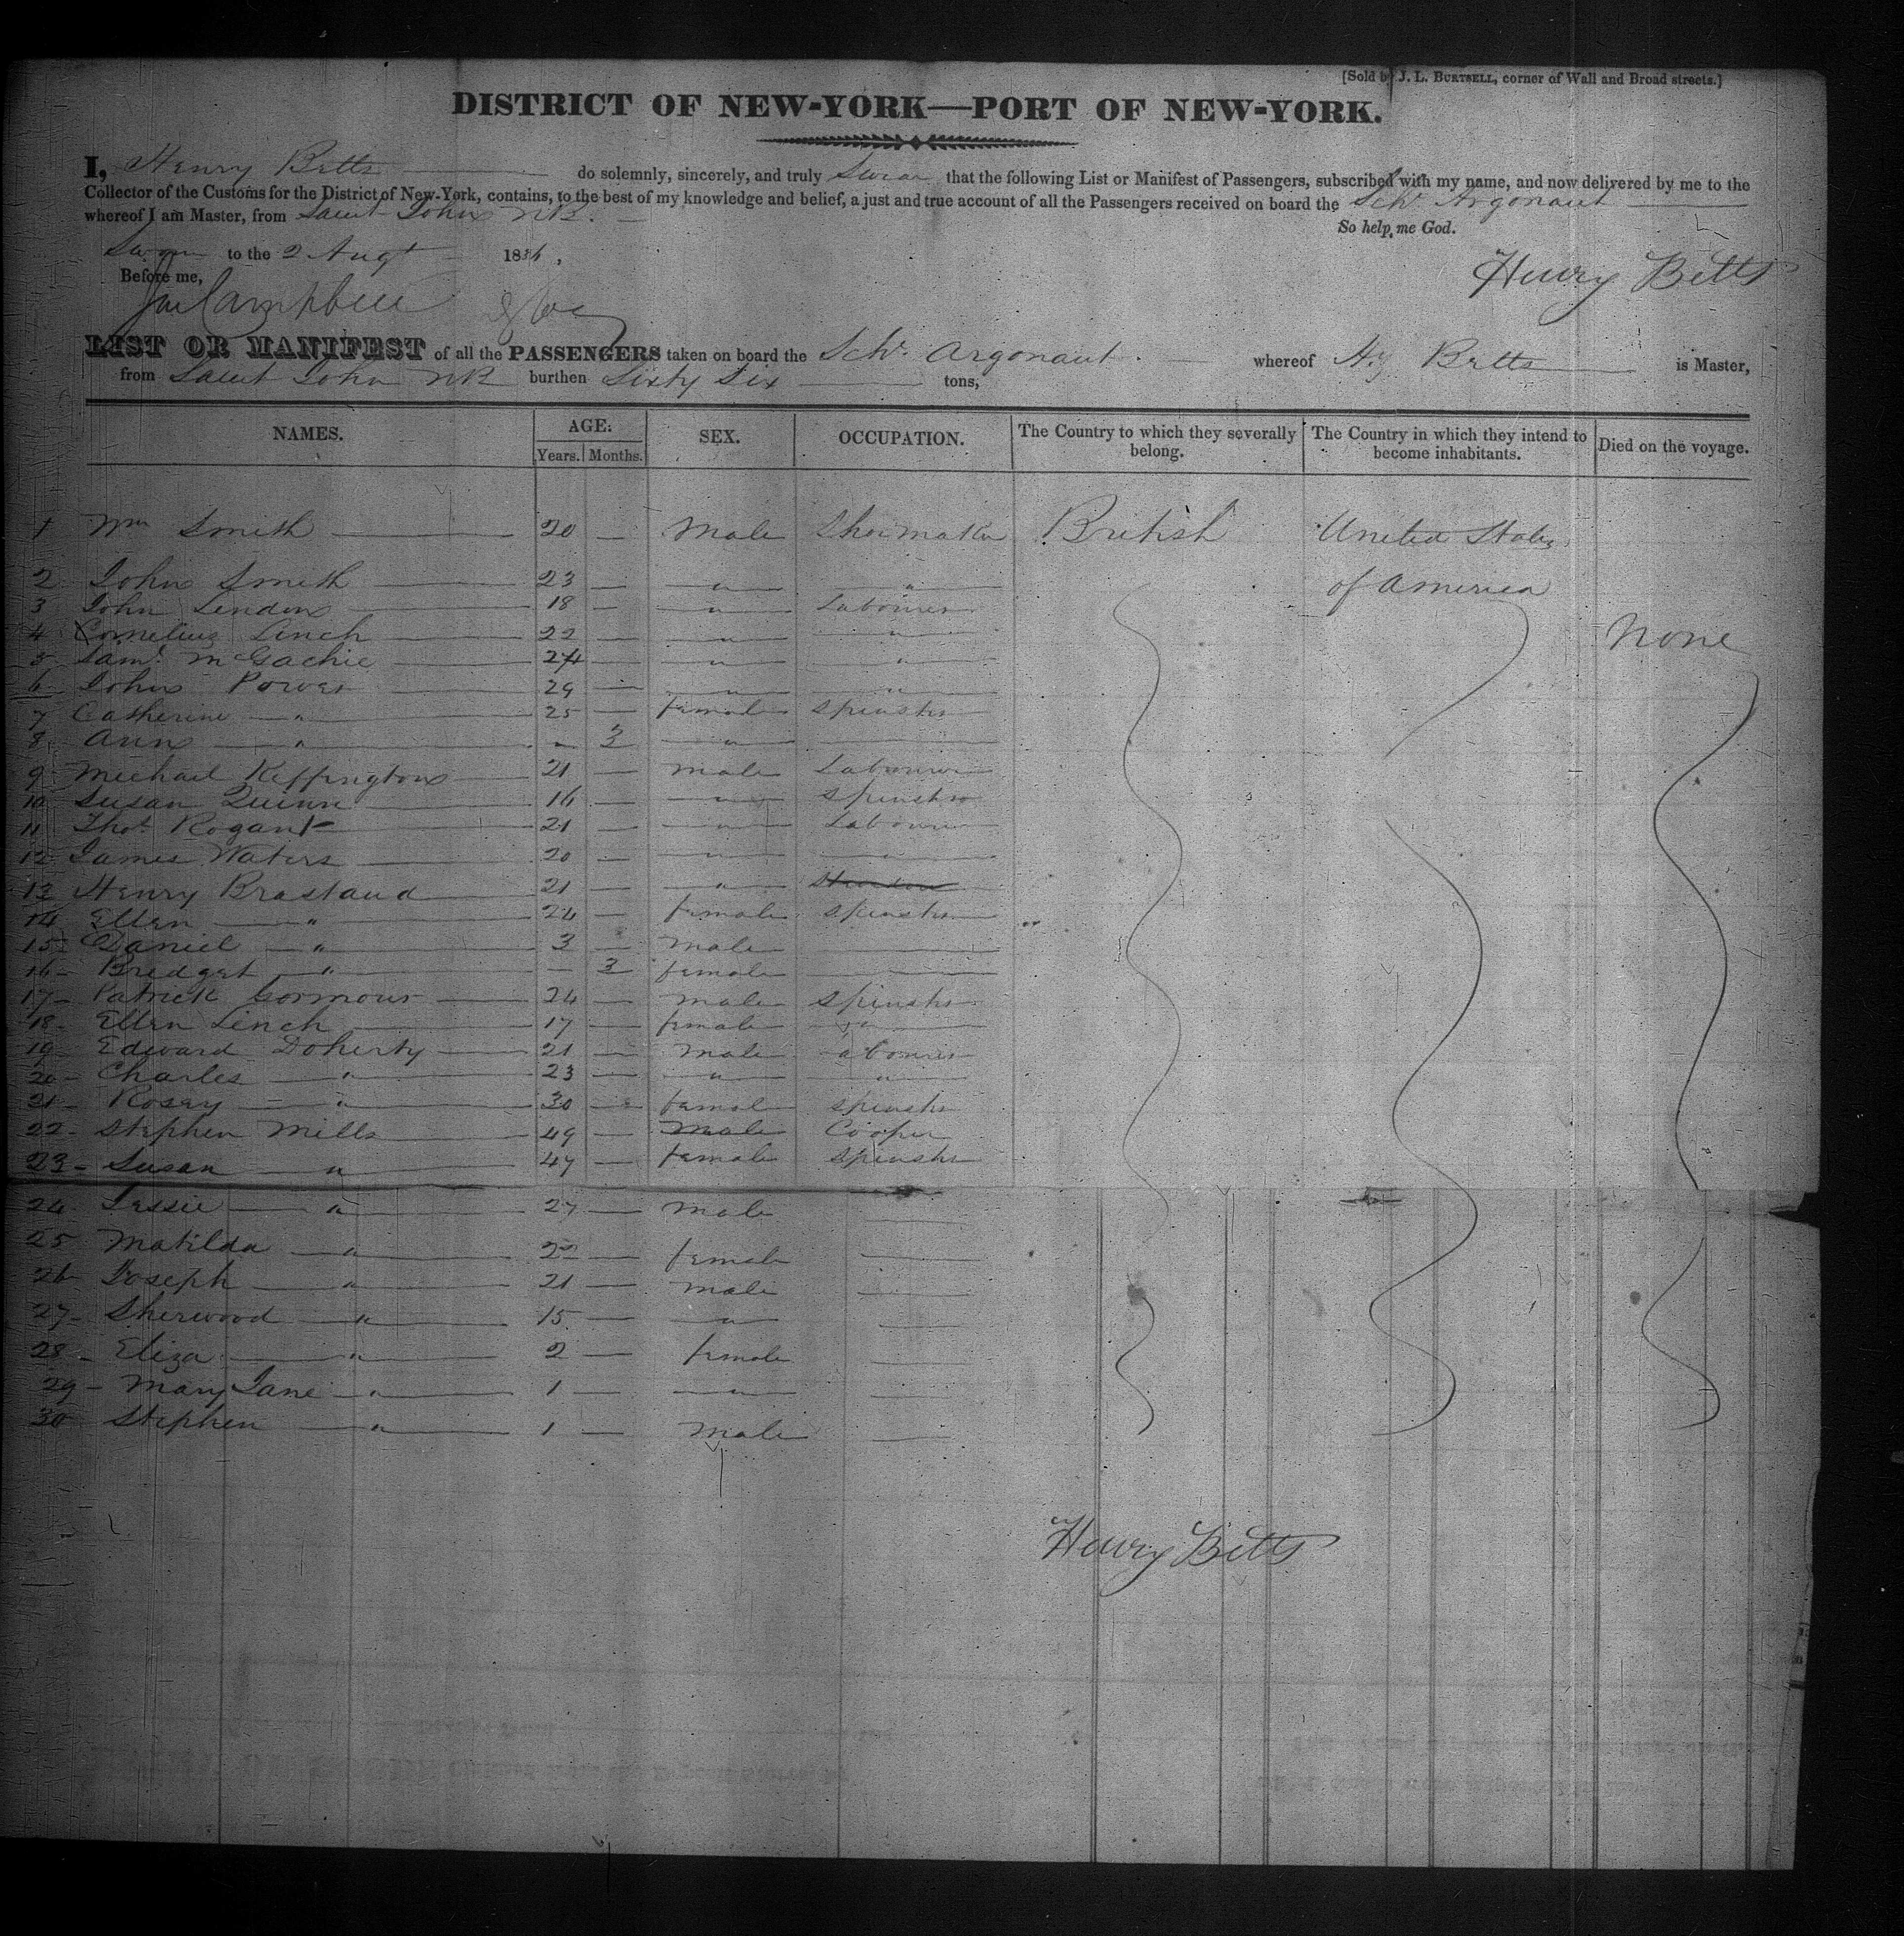 [Sold by J. L. Burtsell, corner of Wall and Broad streets.]
DISTRICT OF NEW-YORK—PORT OF NEW-YORK.
I, Henry Betts do solemnly, sincerely, and truly Swear that the following List or Manifest of Passengers, subscribed with my name, and now delivered by me to the
Collector of the Customs for the District of New-York, contains, to the best of my knowledge and belief, a just and true account of all the Passengers received on board the Schr. Argonaut
whereof I am Master, from Saint John NB.
So help me God.
Sworn to the 2 Augt 1836.
Before me,
Henry Betts
Campbell
LIST OR MANIFEST of all the PASSENGERS taken on board the Schr. Argonaut. whereof Hy Betts is Master,
from Saint John NB burthen Sixty Six tons,
NAMES. AGE: SEX. OCCUPATION. The Country to which they severally belong. The Country in which they intend to become inhabitants. Died on the voyage.
Years. Months.
1 Wm Smith — 20 — Male Shoemaker British United States
2 John Smith — 23 — " " of America
3 John Lendon — 18 — " Labourer
4 Cornelius Linch — 22 — " " None
5 Saml. McGachie — 24 — " "
6 John Power — 29 — " "
7 Catherine — " — 25 — female Spinster
8 Ann — " — " 3 " —
9 Michael Keffington — 21 — male Labourer
10 Susan Quinn — 16 — " Spinster
11 Thos. Rogan — 21 — " Labourer
12 James Waters — 20 — " "
13 Henry Brastaud — 21 — "
14 Ellen — " — 24 — female Spinster
15 Daniel — " — 3 — male —
16 Bredget — " — 3 female —
17 Patrick Gormour — 24 — male Spinster
18 Ellen Linch — 17 — female "
19 Edward Doherty — 21 — male abourer
20 Charles — " — 23 — " "
21 Rosey — " — 30 — female Spinster
22 Stephen Mills — 49 — Male Cooper
23 Susan — " — 47 — female Spinster
24 Jessie — " — 27 — male —
25 Matilda — " — 22 — female —
26 Joseph — " — 21 — male —
27 Sherwood — " — 15 — " —
28 Eliza — " — 2 — female —
29 Mary Jane — " — 1 — " —
30 Stephen — " — 1 — male —
Henry Betts